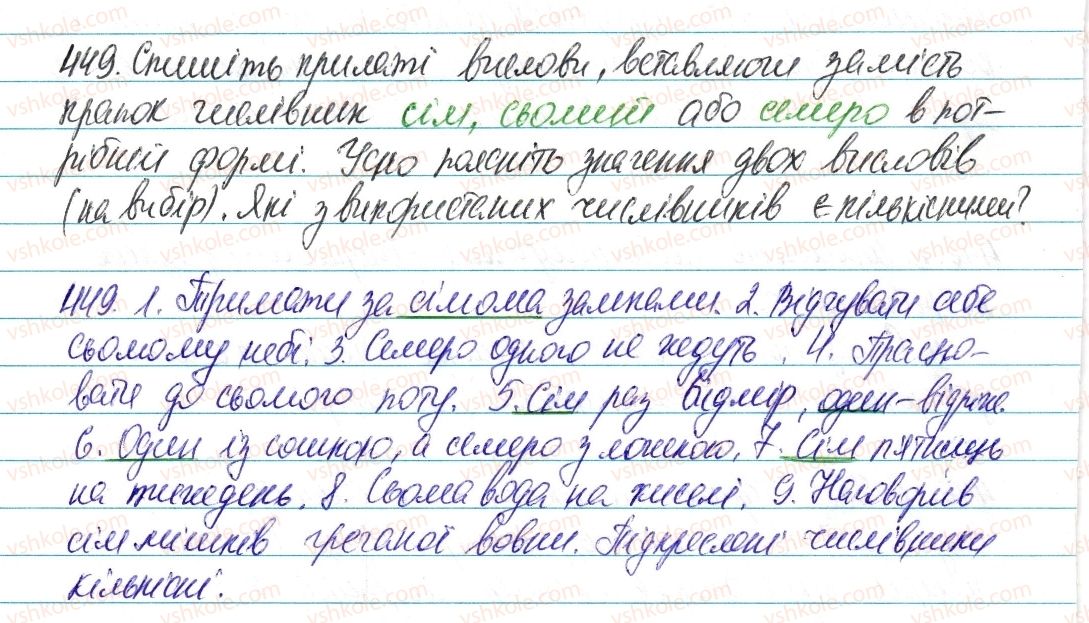 449. Спишіть прилаті вислови, вставляючи замість
крапок числівник сім, сьомий або семеро в пот-
рібній формі. Усно поясніть значення двох висловів
(на вибір). Які з використаних числівників є кількісними?
449. 1. Тримати за сімома замками. 2. Відчувати себе
сьомому небі. 3. Семеро одного не ждуть. 4. Працю-
вати до сьомого поту. 5. Сім раз відмір, один – відріж.
6. Один із сошкою, а семеро з ложкою. 7. Сім п'ятниць
на тиждень. 8. Сьома вода на киселі. 9. Наговорив
сім мішків гречаної вовни. Підкреслені числівники
кількісні.